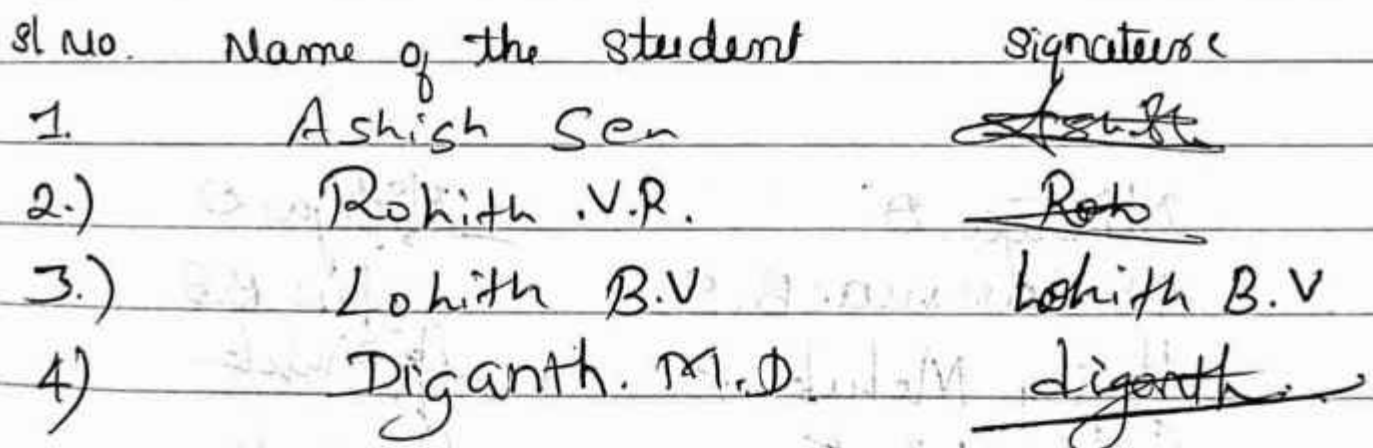 sl No. Name of the student signature
1. Ashish Sen
2.) Rohith .V.R. Roh
3.) Lohith B.V Lohith B.V
4) Diganth. M.D. diganth.